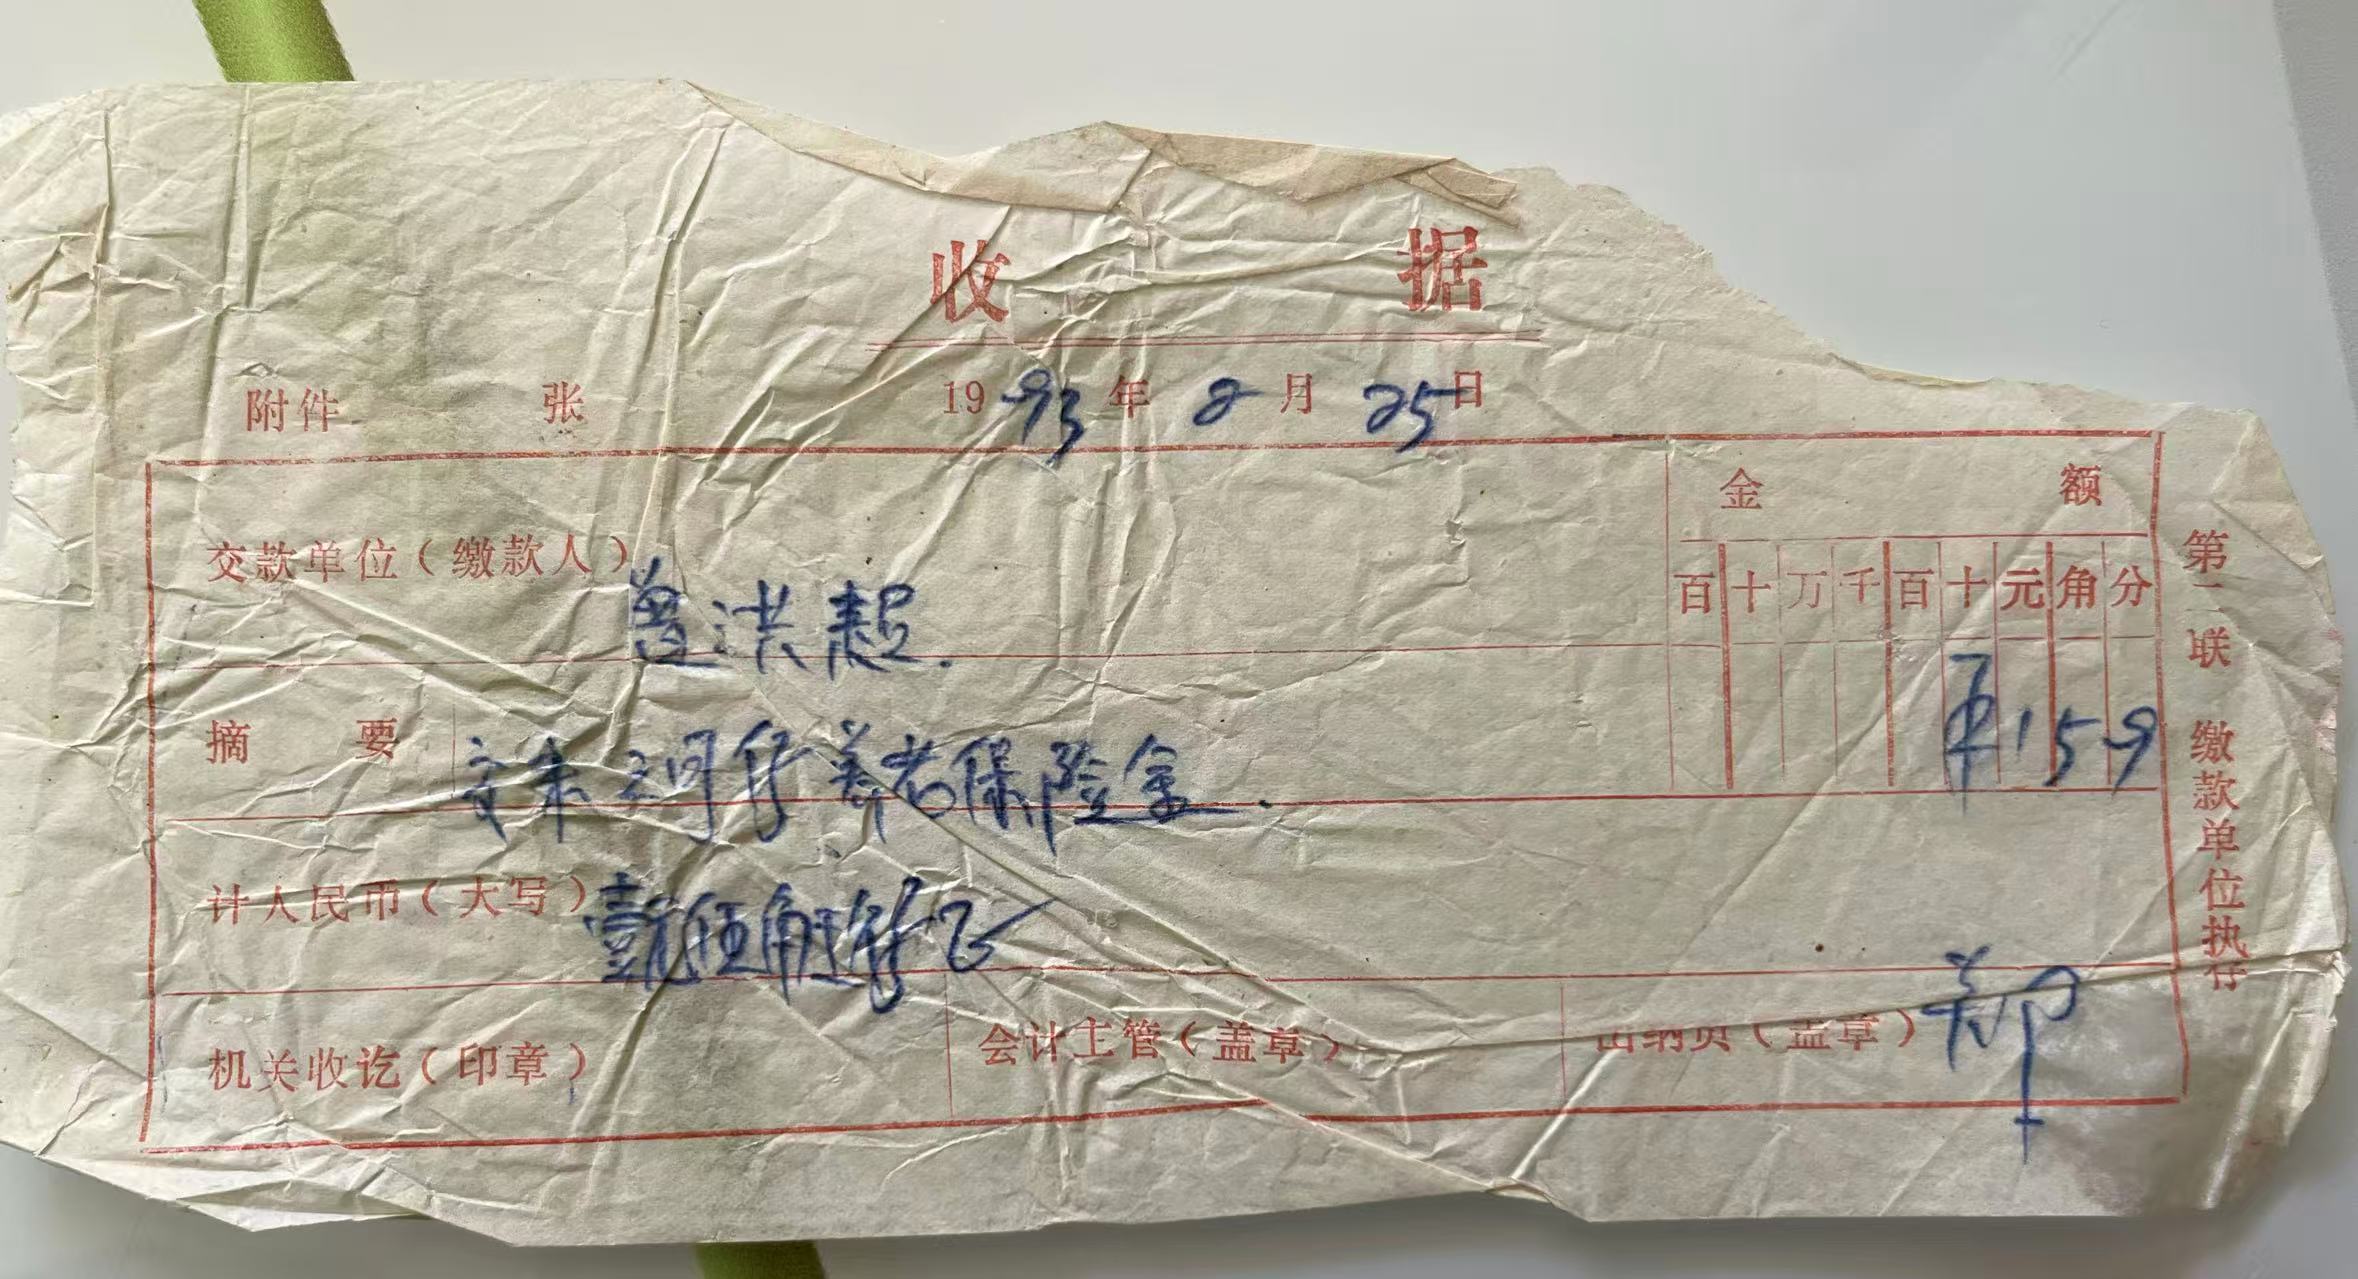 收 据
附件 张 1993年2月25日
交款单位（缴款人） 曾洪超. 金 额
百 十 万 千 百 十 元 角 分
摘 要 养老保险金. 159
计人民币（大写） 壹元伍角
机关收讫（印章） 会计主管（盖章） 出纳员（盖章） 郑
第二联 缴款单位执存